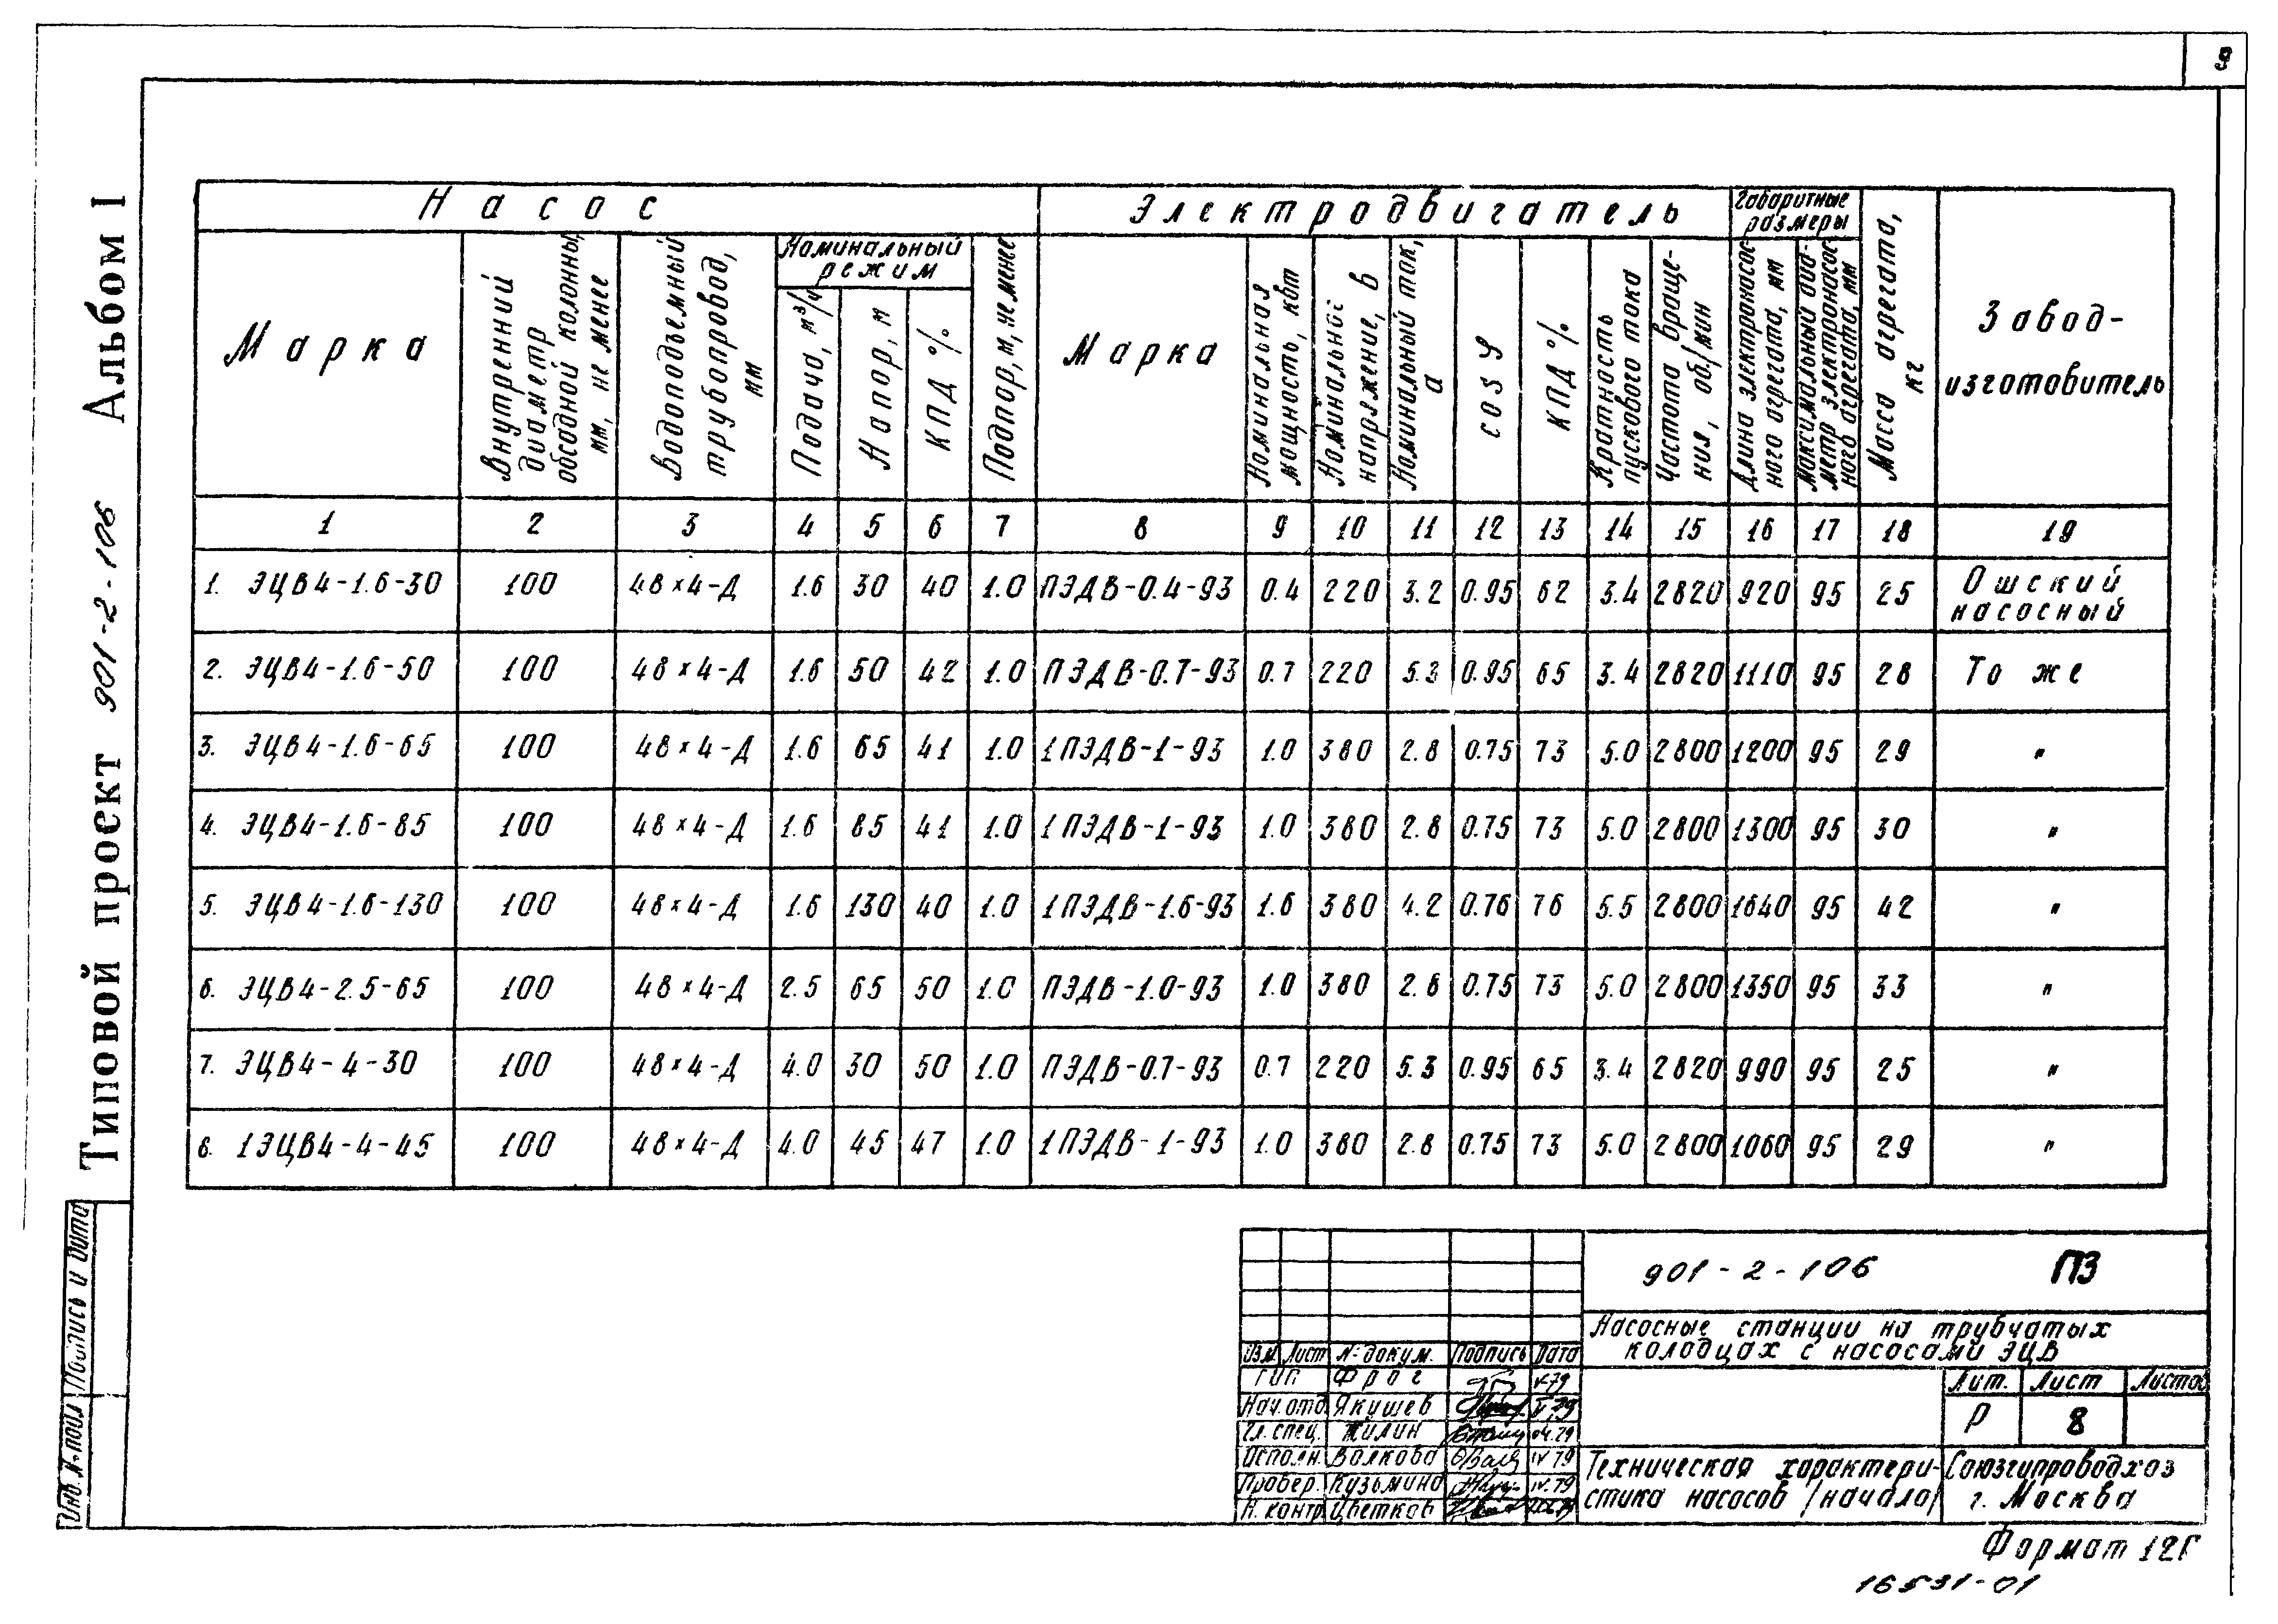 9
Альбом I
Типовой проект 901-2-106
Подпись и дата
Инв. № подл
Насос
Электродвигатель
Габаритные размеры
Масса агрегата, кг
Завод-изготовитель
Марка
Внутренний диаметр обсадной колонны, мм, не менее
Водоподъемный трубопровод, мм
Номинальный режим
Подача, м³/ч
Напор, м
КПД %
Подпор, м, не менее
Марка
Номинальная мощность, квт
Номинальное напряжение, в
Номинальный ток, а
cos φ
КПД %
Кратность пускового тока
Частота вращения, об/мин
Длина электронасосного агрегата, мм
Максимальный диаметр электронасосного агрегата, мм
1 2 3 4 5 6 7 8 9 10 11 12 13 14 15 16 17 18 19
1. ЭЦВ4-1.6-30 100 48×4-Д 1.6 30 40 1.0 ПЭДВ-0.4-93 0.4 220 3.2 0.95 62 3.4 2820 920 95 25 Ошский насосный
2. ЭЦВ4-1.6-50 100 48×4-Д 1.6 50 42 1.0 ПЭДВ-0.7-93 0.7 220 5.3 0.95 65 3.4 2820 1110 95 28 То же
3. ЭЦВ4-1.6-65 100 48×4-Д 1.6 65 41 1.0 1ПЭДВ-1-93 1.0 380 2.8 0.75 73 5.0 2800 1200 95 29 "
4. ЭЦВ4-1.6-85 100 48×4-Д 1.6 85 41 1.0 1ПЭДВ-1-93 1.0 380 2.8 0.75 73 5.0 2800 1300 95 30 "
5. ЭЦВ4-1.6-130 100 48×4-Д 1.6 130 40 1.0 1ПЭДВ-1.6-93 1.6 380 4.2 0.76 76 5.5 2800 1640 95 42 "
6. ЭЦВ4-2.5-65 100 48×4-Д 2.5 65 50 1.0 ПЭДВ-1.0-93 1.0 380 2.8 0.75 73 5.0 2800 1350 95 33 "
7. ЭЦВ4-4-30 100 48×4-Д 4.0 30 50 1.0 ПЭДВ-0.7-93 0.7 220 5.3 0.95 65 3.4 2820 990 95 25 "
8. 1ЭЦВ4-4-45 100 48×4-Д 4.0 45 47 1.0 1ПЭДВ-1-93 1.0 380 2.8 0.75 73 5.0 2800 1060 95 29 "
901-2-106 ПЗ
Насосные станции на трубчатых
колодцах с насосами ЭЦВ
Изм Лист № докум. Подпись Дата
ГИП Фрог V.79
Нач.отд Якушев V.79
Гл.спец. Жилин 04.79
Исполн. Волкова IV 79
Провер. Кузьмина IV.79
Н. контр Цветков
Лит. Лист Листов
Р 8
Техническая характери-
стика насосов /начало/
Союзгипроводхоз
г. Москва
Формат 12Г
16531-01